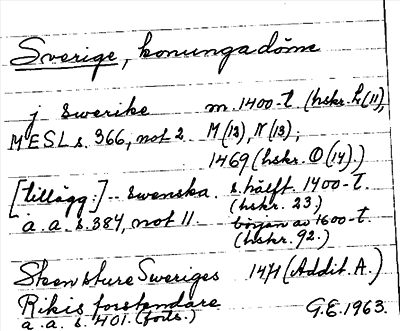 Sverige, konungadöme
j Swerike m. 1400-t. (hskr. L (11),
MESL s. 366, not 2 M (12), N (13);
1469 (hskr. O (14).)
[tillägg:] - Swenska. s. hälft. 1400-t.
(hskr. 23.)
a. a. s. 384, not 11. början av 1600-t.
(hskr. 92.)
Sten sture Sweriges 1471 (Addit. A.)
Rikis forstandare
a. a. s. 401. (forts.) G.E. 1963.